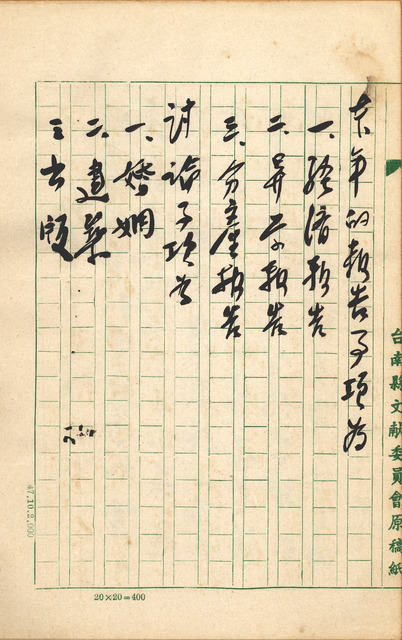 本年的報告事項為
一、經濟報告
二、异公報告
三、分產報告
討論事項為
一、婚姻
二、遺業
三出版
台南縣文献委員會原稿紙
47.10.2.000
20×20=400